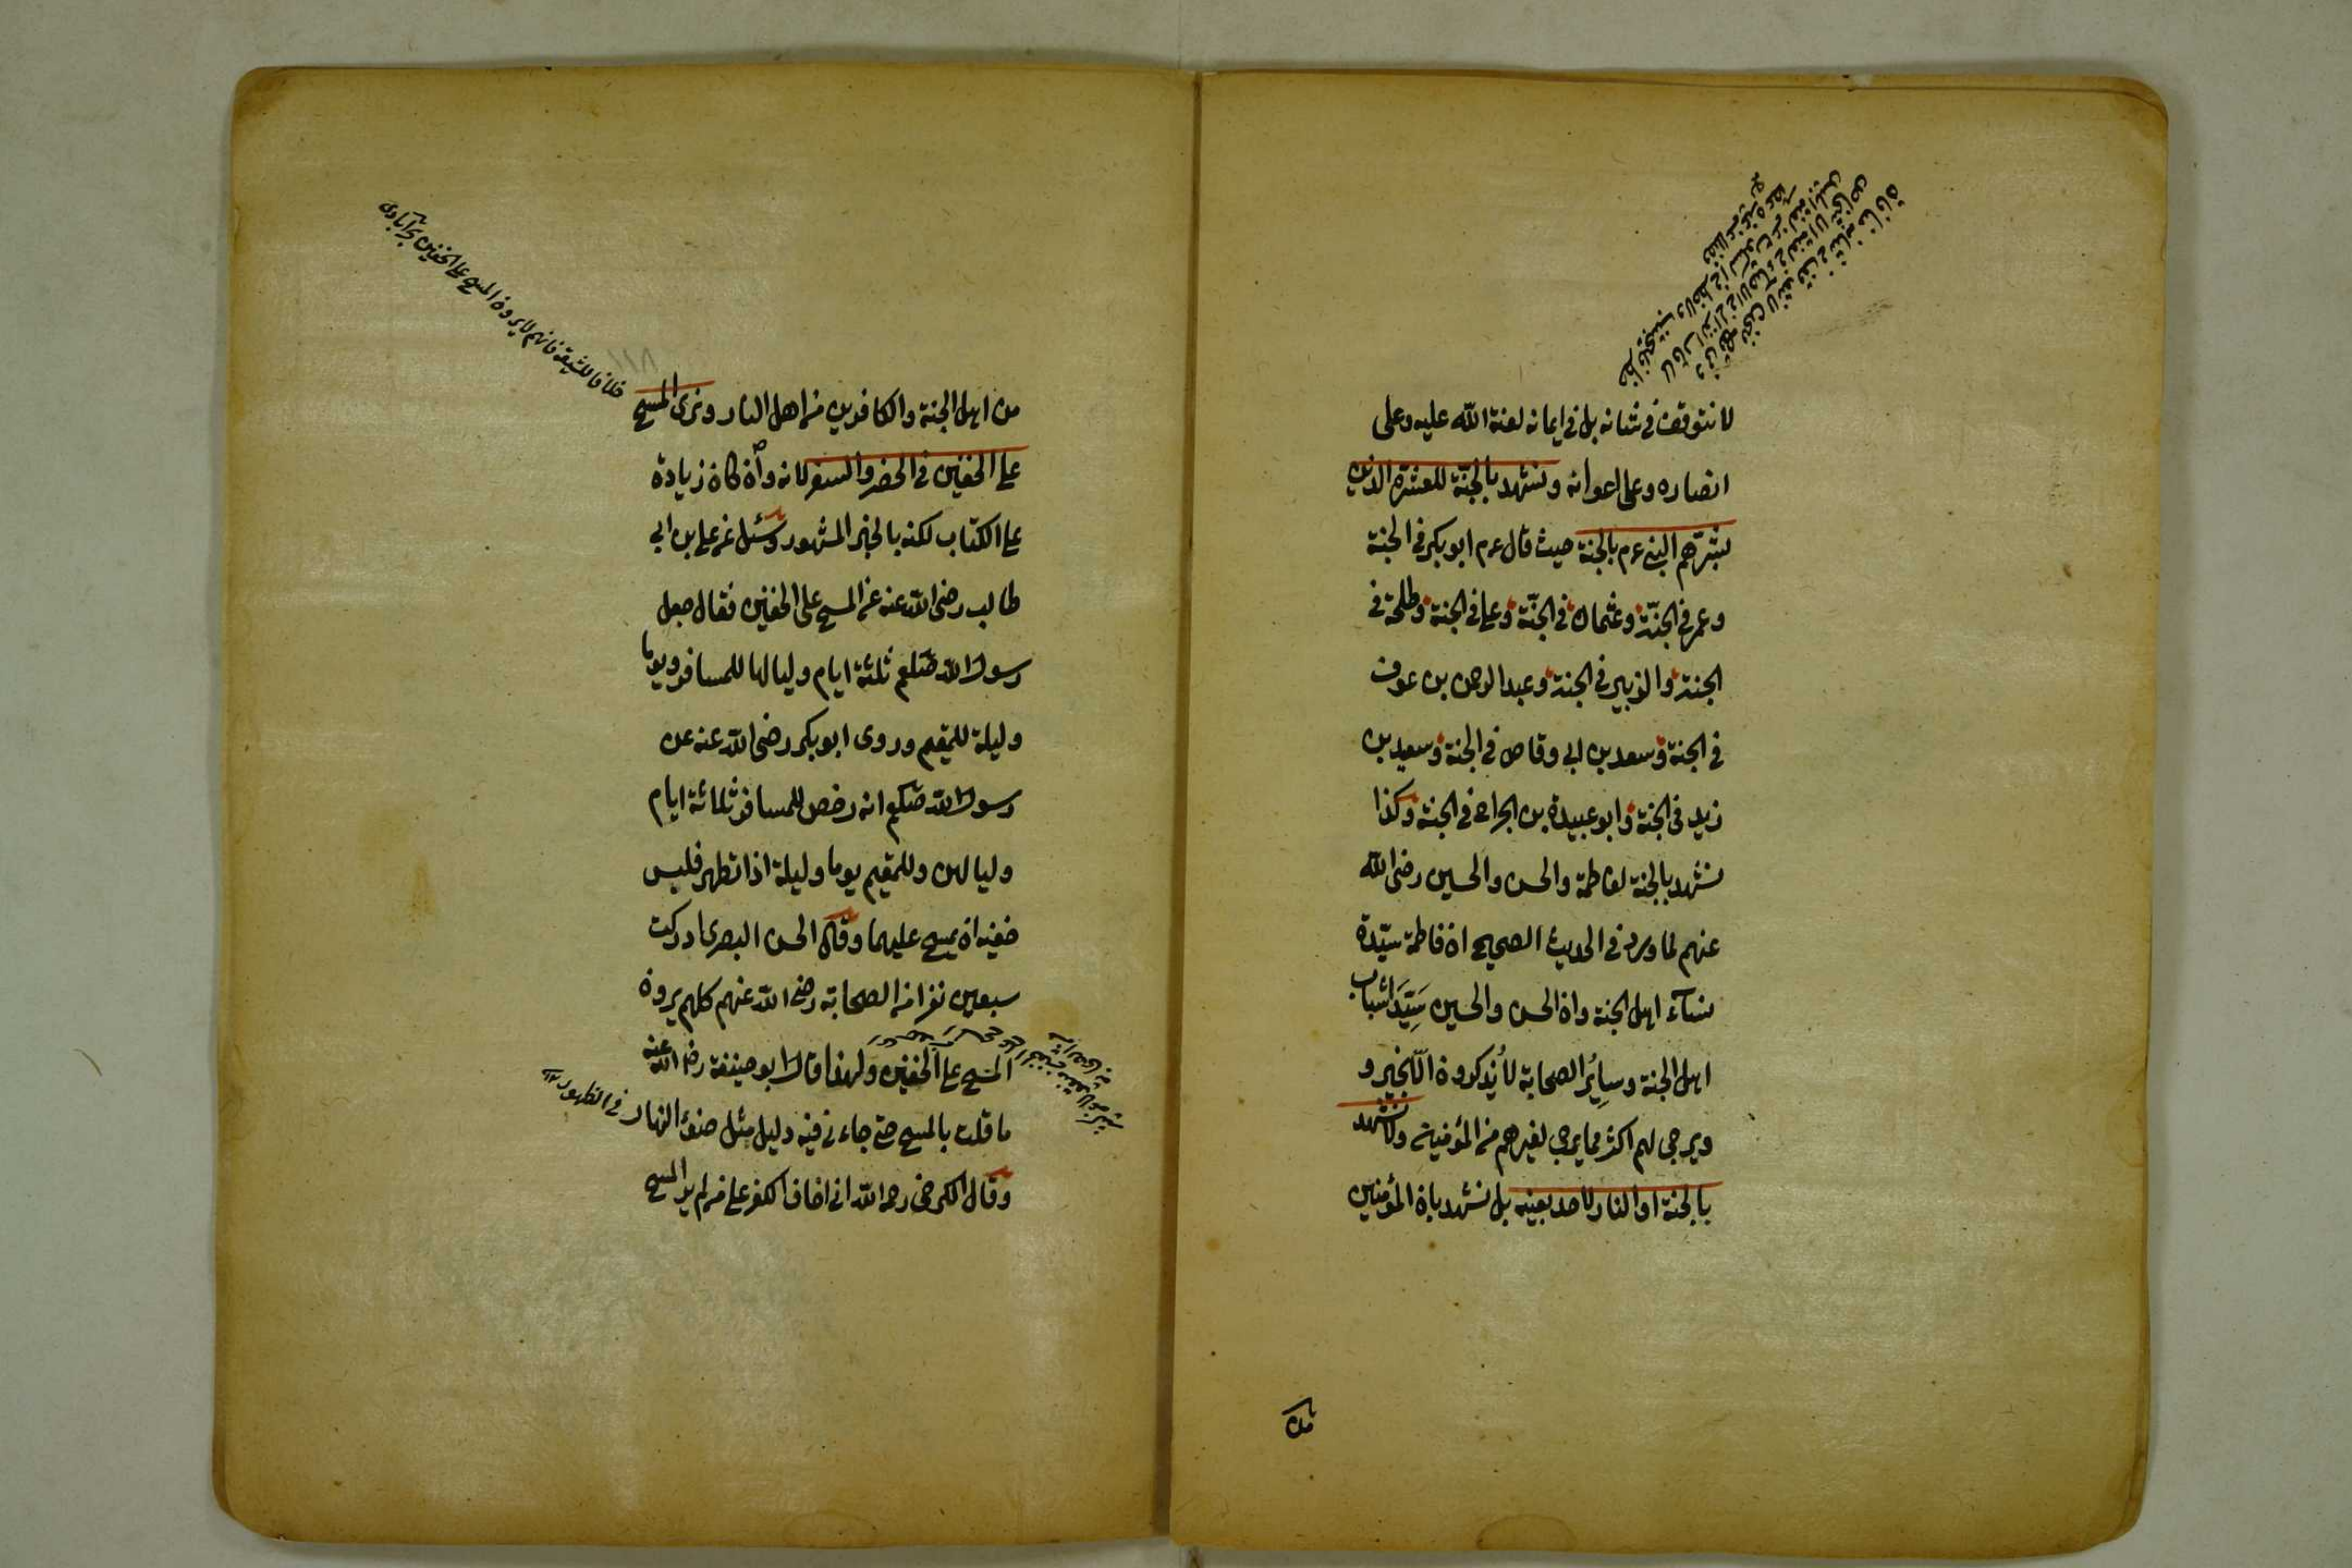 لا نتوقف في شانه بل في ايمانه لعنة الله عليه وعلى
انصاره وعلى اعوانه ونشهد بالجنة للعشرة الذين
بشرهم النبي عم بالجنة حيث قال عم ابو بكر في الجنة
وعمر في الجنّة وعثمان في الجنّة وعلي في الجنة وطلحة في
الجنة والزبير في الجنة وعبد الرحمن بن عوف
في الجنة وسعد بن ابي وقاص في الجنة وسعيد بن
زيد في الجنة وابو عبيدة بن الجراح في الجنة وكذا
نشهد بالجنة لفاطمة والحسن والحسين رضى الله
عنهم لما ورد في الحديث الصحيح ان فاطمة سيّدة
نساء اهل الجنة وان الحسن والحسين سَيّدَا شباب
اهل الجنة وسائر الصحابة لا يُذكرون الّا بخير و
ويرجى لهم اكثر مما يرجى لغيرهم من المؤمنين ولا نشهد
بالجنة او النار لاحد بعينه بل نشهد بان المؤمنين
من
خلافا للشيعة فانهم لا يرون المسح على الخفين
من اهل الجنة والكافرين من اهل النار ونرى المسح
على الخفين في الحضر والسفر لانه وان كان زيادة
على الكتاب لكنه بالخبر المشهور وسئل عن علي بن ابي
طالب رضى الله عنه عن المسح على الخفين فقال جعل
رسول الله صلعم ثلثة ايام ولياليها للمسافر ويوما
وليلة للمقيم وروى ابو بكر رضى الله عنه عن
رسول الله صلعم انه رخص للمسافر ثلاثة ايام
ولياليهن وللمقيم يوما وليلة اذا تطهر فلبس
خفيه ان يمسح عليهما وقال الحسن البصرى ادركت
سبعين نفرا من الصحابة رضى الله عنهم كلهم يرون
المسح على الخفين ولهذا قال ابو حنيفة رضى الله عنه
ما قلت بالمسح حتى جاءني فيه دليل مثل ضوء النهار
في الظهور
وقال الكرخى رحمه الله اني اخاف الكفر على من لم ير المسح